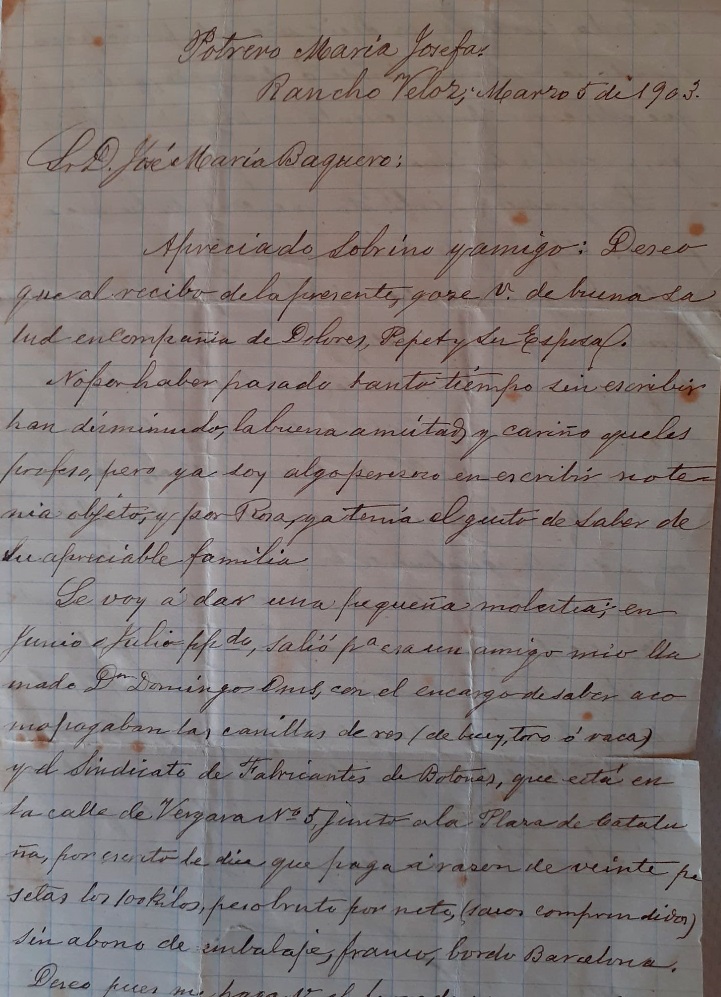 Potrero María Josefa:
Rancho Veloz; Marzo 5 de 1903.
Sr D. José María Baquero:
Apreciado Sobrino y amigo: Deseo
que al recibo de la presente, goze V. de buena Sa
lud en Compañia de Dolores, Pepet y Su Esposa.
No por haber pasado tanto tiempo sin escribir
han disminuido, la buena amistad y cariño que les
profeso, pero ya soy algo peresoso en escribir no te-
nia objeto, y por Rosa, ya tenía el gusto de Saber de
Su apreciable familia
Le voy á dar una pequeña molestia; en
Junio o Julio ppdo, salió pa esa un amigo mio lla
mado Dn Domingo Oms, con el encargo de saber a co
mo pagaban las canillas de res (de buey, toro ó vaca)
y el Sindicato de Fabricantes de Botones, que está en
la calle de Vergara No 5, junto a la Plaza de Catalu
ña, por escrito le dice que paga á razon de veinte pe
setas los 100 Kilos, peso bruto por neto, (sacos comprendidos)
sin abono de embalaje, franco, bordo Barcelona.
Deseo pues me haga V. el